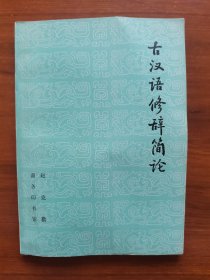 古汉语修辞简论
赵克勤
商务印书馆